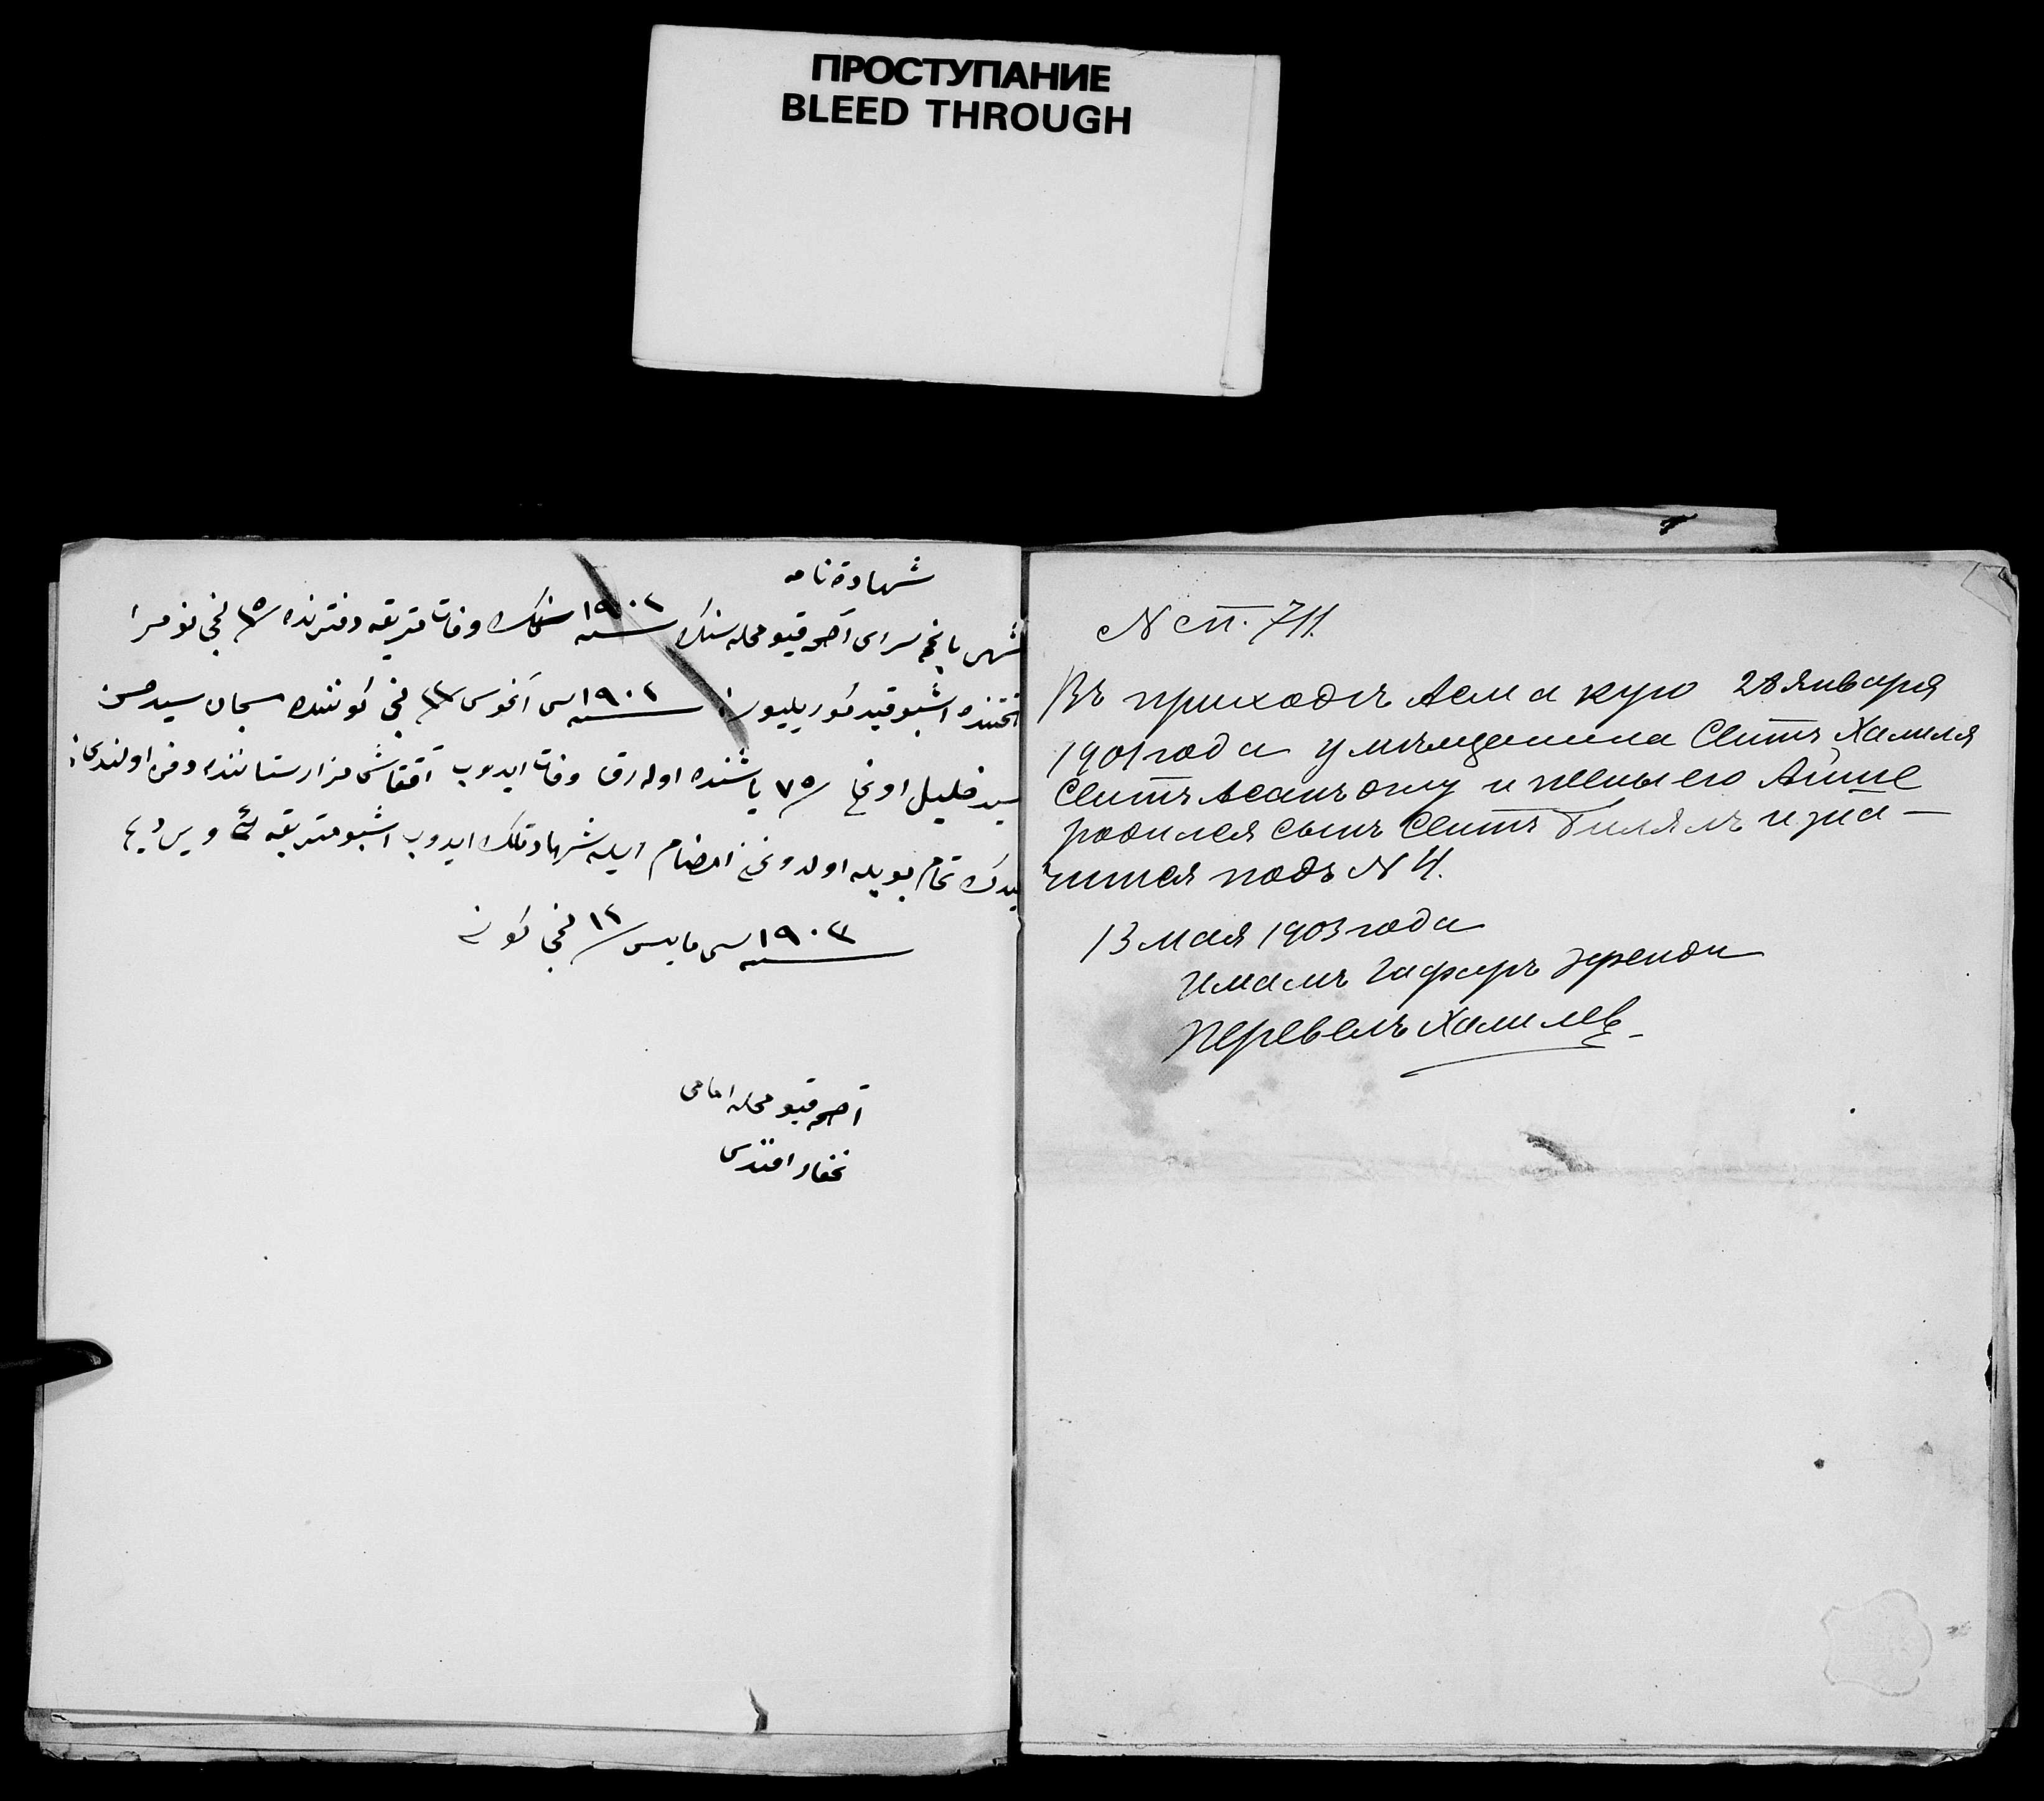 ПРОСТУПАНИЕ
BLEED THROUGH
شهادتنامه
شهر باغچه سرای آصمه قیو محله سنك ١٩٠٢ سنه سنك وفات متریقه دفترنده ١٥ نجی نومرا
تحتنده اشبو قید كوریلیور: ١٩٠٢ سنه سی آغوس نجی كوننده مسجان سید حسن
سید خلیل اوغلی ٧٥ یاشنده اوله رق وفات ایدوب آققاش مزارستاننده دفن اولندی:
دیدك تمام بویله اولدوغنی امضام ایله شهادتلك ایدوب اشبو متریقه یی ویردیم
١٩٠٣ سنه سی مایس ١٢ نجی كونی
آصمه قیو محله امامی
غفار افندی
N ст. 711.
Въ приходѣ Асма кую 28 января
1901 года у мѣщанина Сеитъ Халиля
Сеитъ Асанъ оглу и жены его Айше
родился сынъ Сеитъ Билялъ и зна-
чится подъ N 4.
13 мая 1903 года
Имамъ Гафаръ эфенди
Перевелъ Халилев